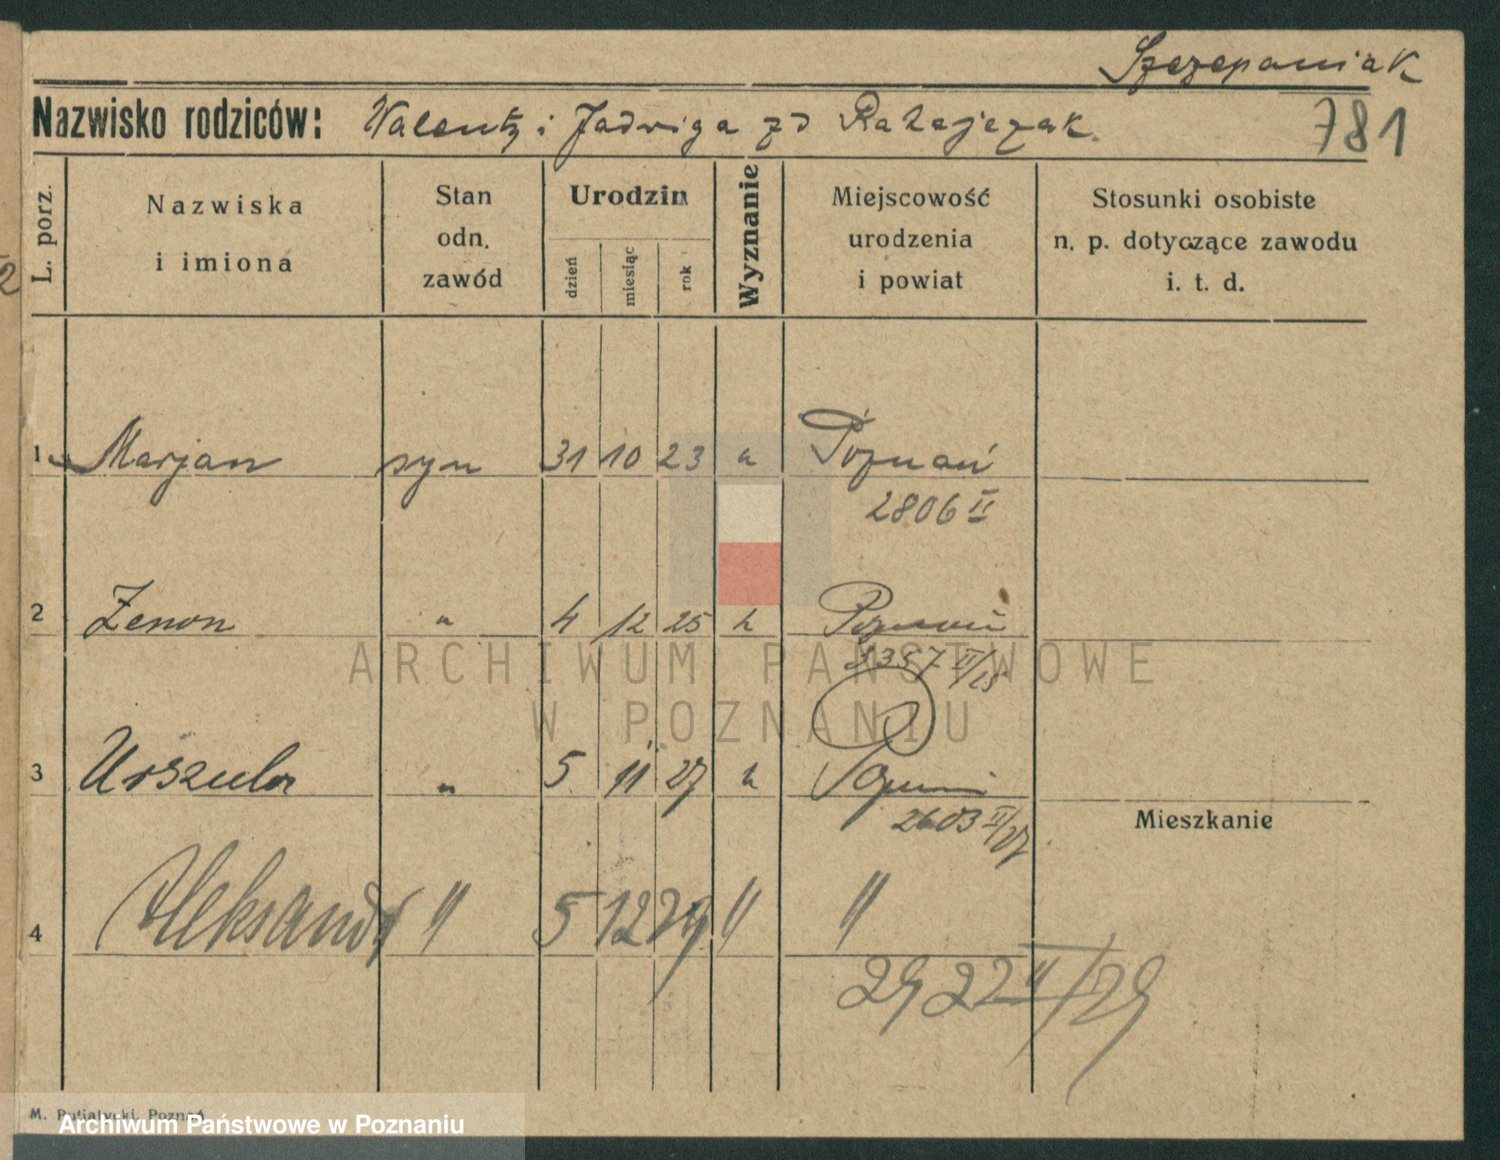 Szczepaniak
Nazwisko rodziców: Walenty i Jadwiga zd Ratajczak.
781
L. porz.
Nazwiska i imiona
Stan odn. zawód
Urodzin
dzień
miesiąc
rok
Wyznanie
Miejscowość urodzenia i powiat
Stosunki osobiste n. p. dotyczące zawodu i. t. d.
1 Marjan syn 31 10 23 k Poznań
2806 II
2 Zenon " 4 12 25 k Poznań
II/25
3 Urszula " 5 11 27 k Poznań
2603 II/27
Mieszkanie
4 Aleksandr " 5 12 29 " "
2922 II/29
ARCHIWUM PAŃSTWOWE
W POZNANIU
M. Putiatycki, Poznań
Archiwum Państwowe w Poznaniu